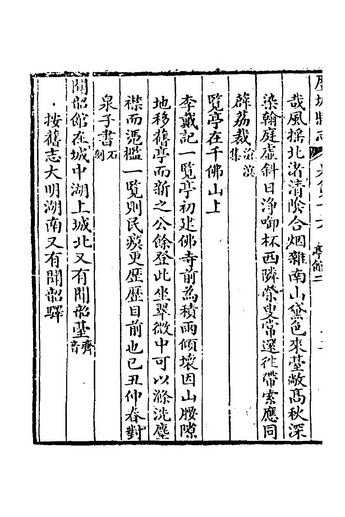 哉風揺北渚清陰合烟雜南山黛色來臺敞髙秋深
染翰庭虛斜日淨啣杯西隣榮叟常還徃帶索應同
薜荔裁滄溟集
覽亭在千佛山上
李戴記一覽亭初建佛寺前為積雨傾壞因山腰隙
地移舊亭而新之公餘登此坐翠微中可以滌洗塵
襟而憑檻一覽則民瘼更歷歷目前也已丑仲春對
泉子書石刻
聞韶館在城中湖上城北又有聞韶臺齊音
按舊志大明湖南又有聞韶驛